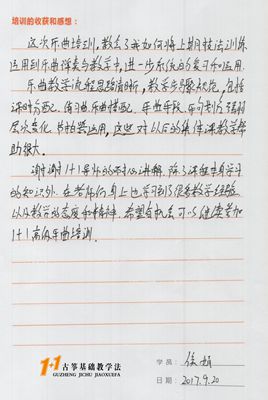 培训的收获和感想:
这次乐曲培训,教会了我如何将上期技法训练
运用到乐曲弹奏与教学中,进一步系统的复习和运用。
乐曲教学流程思路清晰,教学步骤欣悦,包括
课时分配、练习曲乐曲搭配、乐曲乐段、乐句划分强弱
层次变化、节拍器运用,这些对以后的集体课教学帮
助很大。
谢谢1+1导师的耐心讲解,除了课程本身学习
的知识外,在老师们身上也学习到了很多教学经验
以及教学的态度和精神。希望有机会可以继续参加
1+1高级乐曲培训。
1+1 古筝基础教学法
GUZHENG JICHU JIAOXUEFA
学员:徐娟
日期:2017.9.20